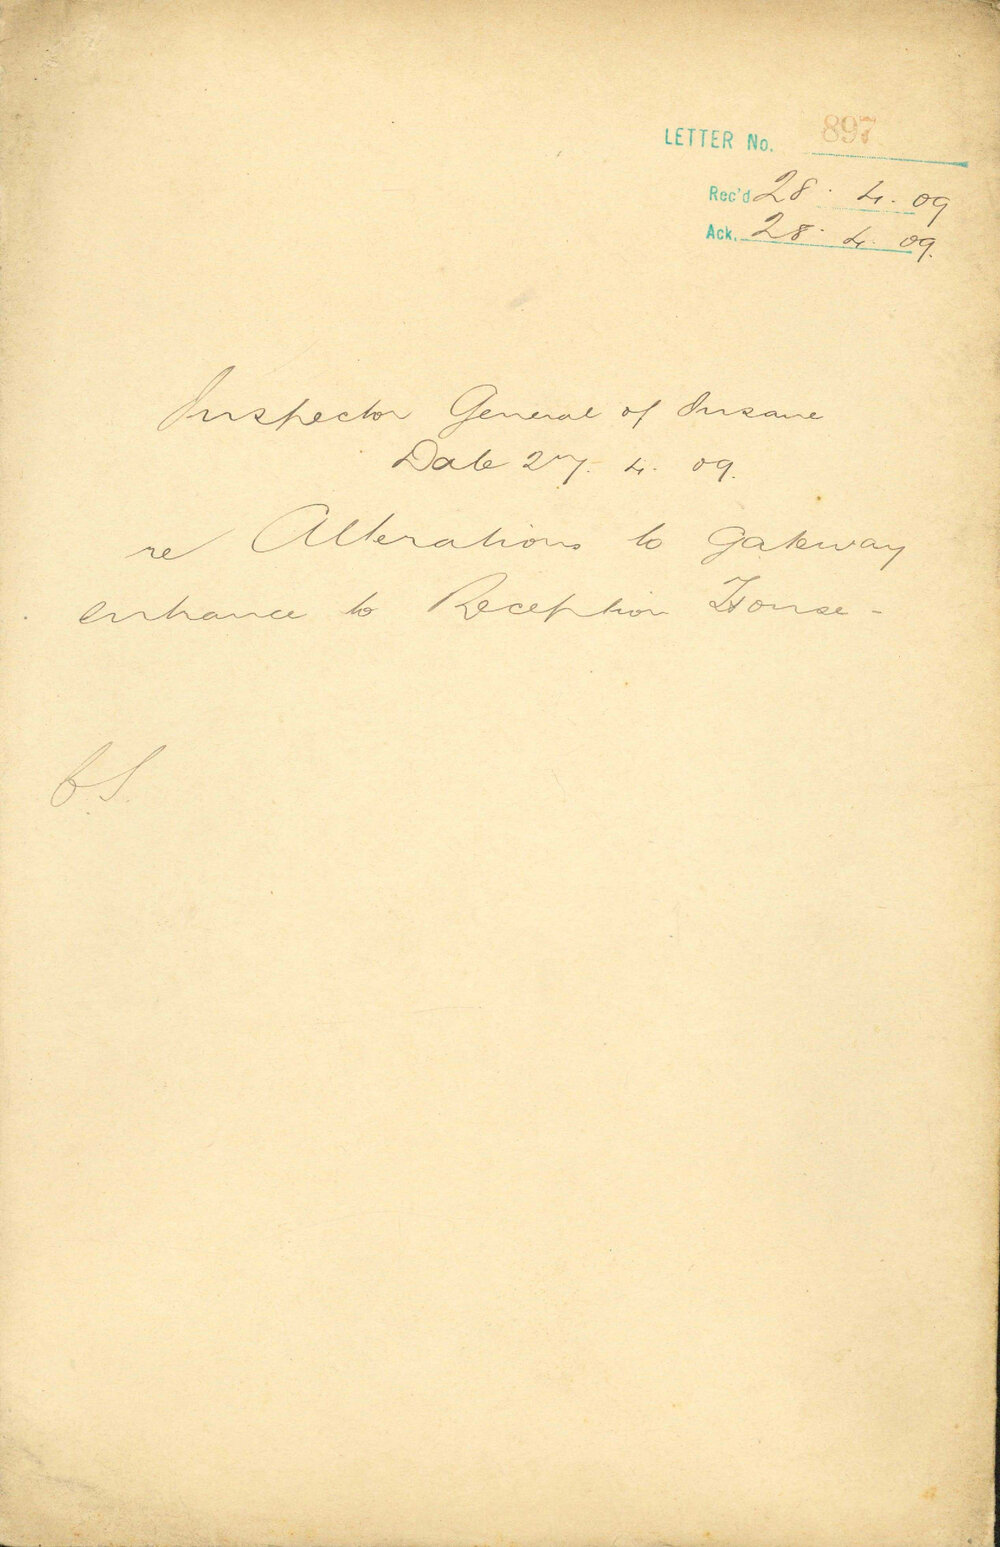 LETTER No. 897
Rec'd 28. 4. 09
Ack. 28. 4. 09.
Inspector General of Insane
Date 27. 4. 09.
re Alterations to gateway
entrance to Reception House -